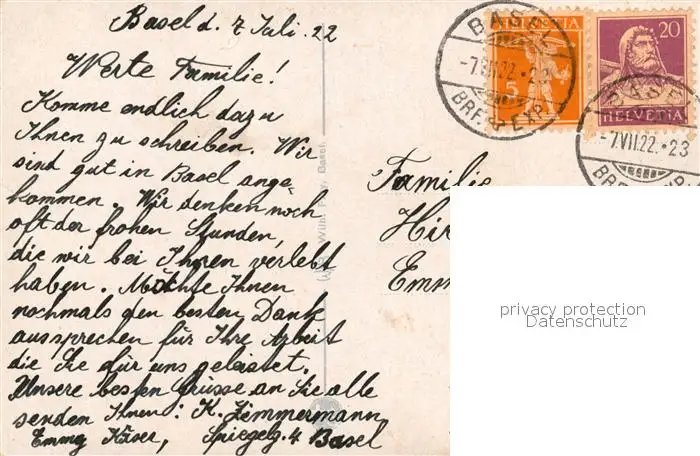 Basel d. 7 Juli. 22
Werte Familie!
Komme endlich dazu
Ihnen zu schreiben. Wir
sind gut in Basel ange
kommen. Wir denken noch
oft der frohen Stunden,
die wir bei Ihnen verlebt
haben. Möchte Ihnen
nochmals den besten Dank
aussprechen für Ihre Arbeit
die Sie für uns geleistet.
Unsere besten Grüsse an Sie alle
senden Ihnen: K. Zimmermann
Emmy Käser, Spiegelg. 4 Basel
Wilh. Frey, Basel.
HELVETIA
5
20
HELVETIA
BASEL
-7.VII.22.-23
BRF. EXP.
BASEL
-7.VII.22.-23
Familie
Hir
Emm
privacy protection
Datenschutz